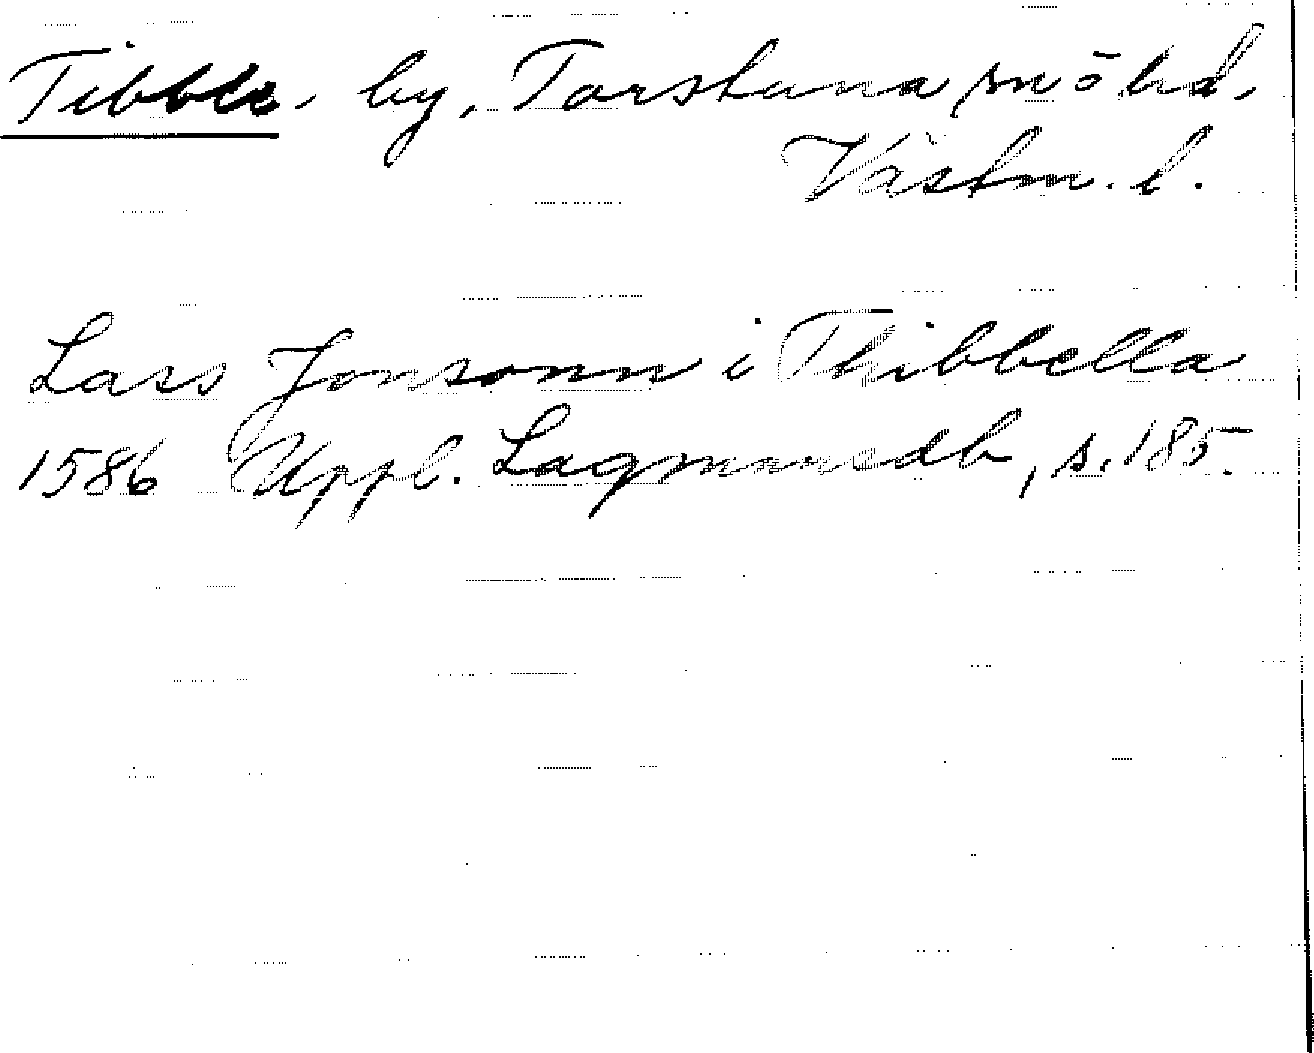 Tibble, by, Torstuna sn o hd,
Västm. l.
Lars Jonsonn i Thibbella
1586 Uppl. Lagmansdb, s. 185.